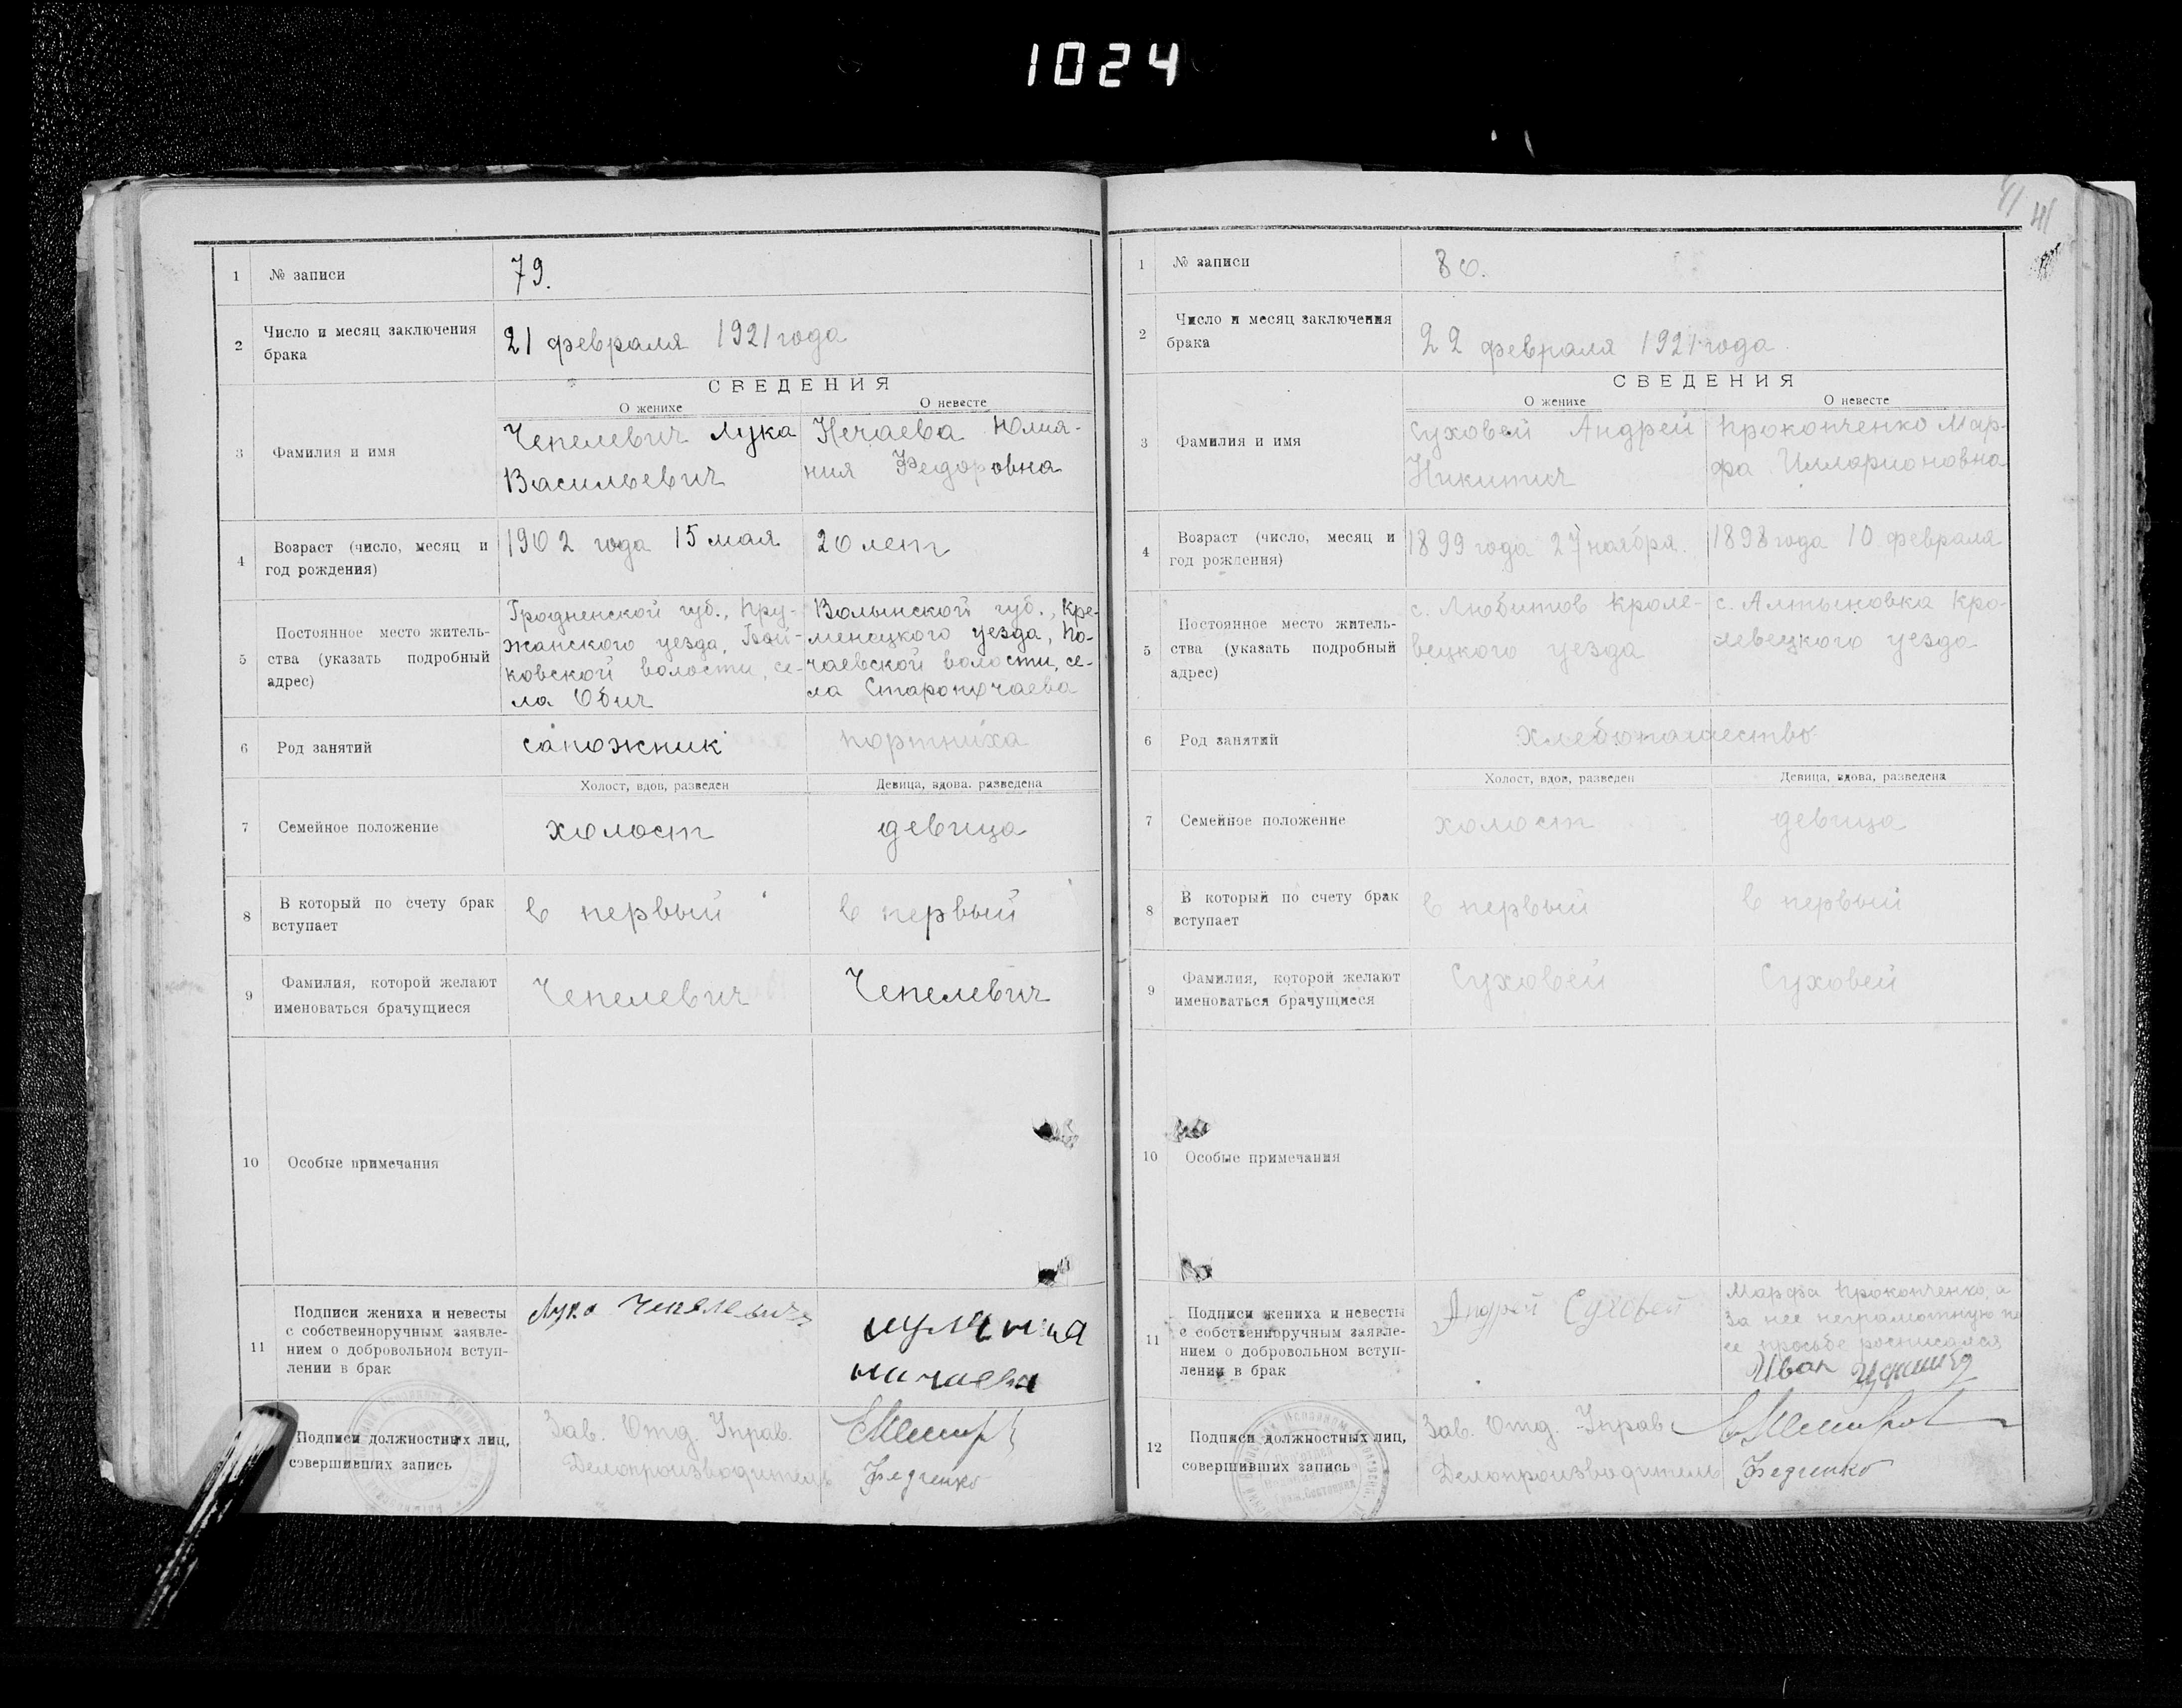 1024
41
41
1 № записи 79.
2 Число и месяц заключения
брака
21 февраля 1921 года
СВЕДЕНИЯ
О женихе О невесте
3 Фамилия и имя
Чепелевич Лука
Васильевич
Нечаева Юлиа-
ния Федоровна
4 Возраст (число, месяц и
год рождения)
1902 года 15 мая
20 лет
5 Постоянное место житель-
ства (указать подробный
адрес)
Гродненской губ., Пру-
жанского уезда,
ковской волости, се-
ла Обич
Волынской губ., Кре-
менецкого уезда, По-
чаевской волости, се-
ла Старопочаева
6 Род занятий
сапожник
портниха
Холост, вдов, разведен Девица, вдова. разведена
7 Семейное положение
холост
девица
8 В который по счету брак
вступает
в первый
в первый
9 Фамилия, которой желают
именоваться брачущиеся
Чепелевич
Чепелевич
10 Особые примечания
11 Подписи жениха и невесты
с собственноручным заявле-
нием о добровольном вступ-
лении в брак
Лука Чепелевич
Подписи должностных лиц,
совершивших запись
Зав. Отд. Управ.
Делопроизводитель
Федченко
1 № записи 80.
2 Число и месяц заключения
брака
22 февраля 1921 года
СВЕДЕНИЯ
О женихе О невесте
3 Фамилия и имя
Суховей Андрей
Никитич
Прокопченко Мар-
фа Илларионовна
4 Возраст (число, месяц и
год рождения)
1899 года 27 ноября.
1898 года 10 февраля
5 Постоянное место житель-
ства (указать подробный
адрес)
с. Любитов Кроле-
вецкого уезда
с. Алтыновка Кро-
левецкого уезда
6 Род занятий
хлебопашество
Холост, вдов, разведен Девица, вдова, разведена
7 Семейное положение
холост
девица
8 В который по счету брак
вступает
в первый
в первый
9 Фамилия, которой желают
именоваться брачущиеся
Суховей
Суховей
10 Особые примечания
11 Подписи жениха и невесты
с собственноручным заявле-
нием о добровольном вступ-
лении в брак
Андрей Суховей
Марфа Прокопченко, а
за нее неграмотную по
ее просьбе росписался
Иван
12 Подписи должностных лиц,
совершивших запись
Зав. Отд. Управ.
Делопроизводитель
Федченко